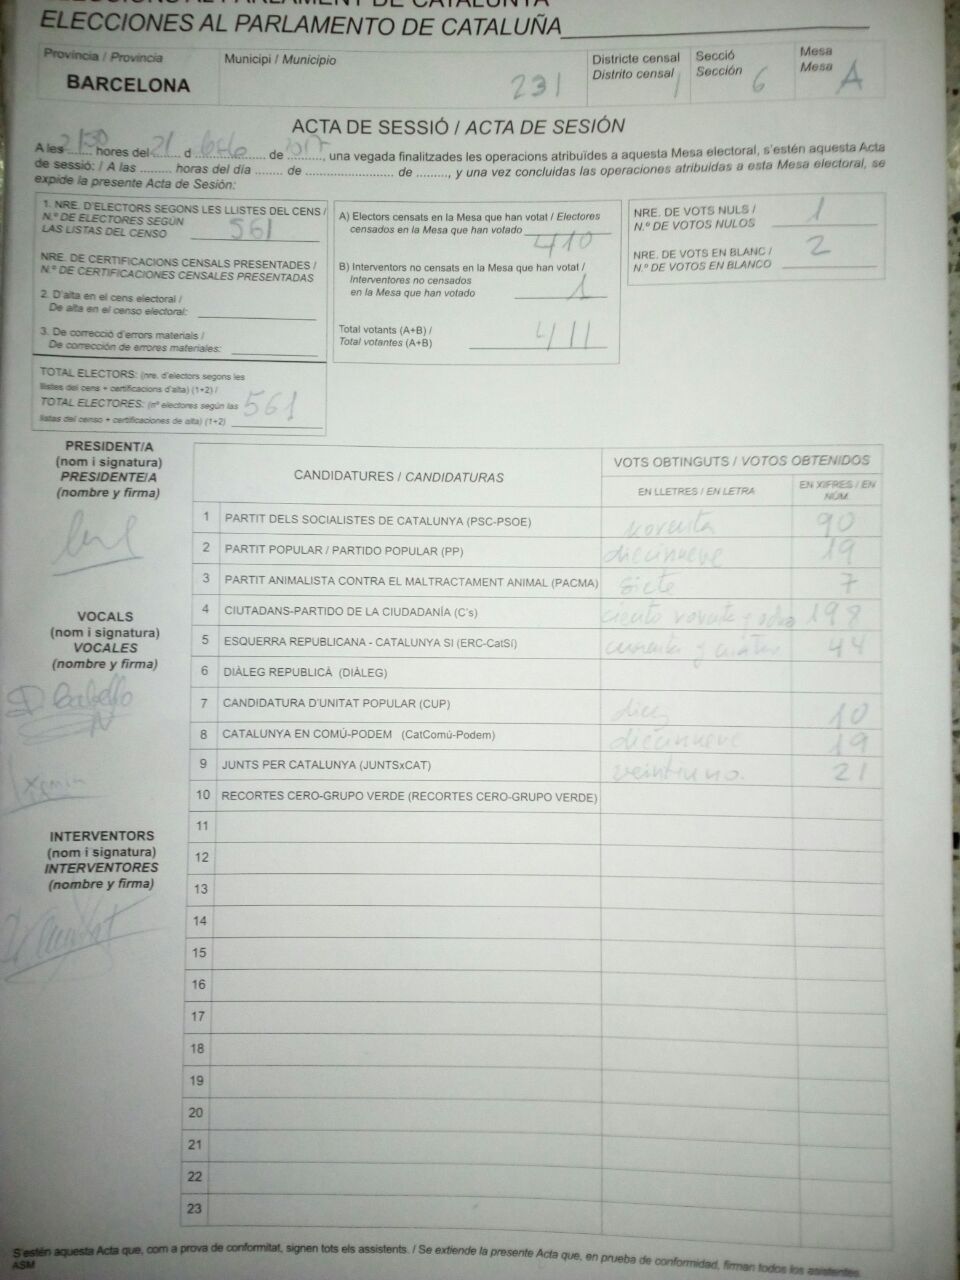 ELECCIONS AL PARLAMENT DE CATALUNYA
ELECCIONES AL PARLAMENTO DE CATALUÑA
Província / Provincia
BARCELONA
Municipi / Municipio
231
Districte censal
Distrito censal 1
Secció
Sección 6
Mesa
Mesa A
ACTA DE SESSIÓ / ACTA DE SESIÓN
A les ........ hores del 21 d ................. de 2017, una vegada finalitzades les operacions atribuïdes a aquesta Mesa electoral, s'estén aquesta Acta
de sessió: / A las ......... horas del día ........ de .......................... de ........., y una vez concluidas las operaciones atribuidas a esta Mesa electoral, se
expide la presente Acta de Sesión:
1. NRE. D'ELECTORS SEGONS LES LLISTES DEL CENS /
N.º DE ELECTORES SEGÚN
LAS LISTAS DEL CENSO 561
NRE. DE CERTIFICACIONS CENSALS PRESENTADES /
N.º DE CERTIFICACIONES CENSALES PRESENTADAS
2. D'alta en el cens electoral /
De alta en el censo electoral:
3. De correcció d'errors materials /
De corrección de errores materiales:
TOTAL ELECTORS: (nre. d'electors segons les
llistes del cens + certificacions d'alta) (1+2) /
TOTAL ELECTORES: (nº electores según las
listas del censo + certificaciones de alta) (1+2) 561
A) Electors censats en la Mesa que han votat / Electores
censados en la Mesa que han votado 410
B) Interventors no censats en la Mesa que han votat /
Interventores no censados
en la Mesa que han votado 1
Total votants (A+B) /
Total votantes (A+B) 411
NRE. DE VOTS NULS /
N.º DE VOTOS NULOS 1
NRE. DE VOTS EN BLANC /
N.º DE VOTOS EN BLANCO 2
PRESIDENT/A
(nom i signatura)
PRESIDENTE/A
(nombre y firma)
VOCALS
(nom i signatura)
VOCALES
(nombre y firma)
INTERVENTORS
(nom i signatura)
INTERVENTORES
(nombre y firma)
CANDIDATURES / CANDIDATURAS
VOTS OBTINGUTS / VOTOS OBTENIDOS
EN LLETRES / EN LETRA
EN XIFRES / EN NÚM.
1 PARTIT DELS SOCIALISTES DE CATALUNYA (PSC-PSOE) noventa 90
2 PARTIT POPULAR / PARTIDO POPULAR (PP) diecinueve 19
3 PARTIT ANIMALISTA CONTRA EL MALTRACTAMENT ANIMAL (PACMA) siete 7
4 CIUTADANS-PARTIDO DE LA CIUDADANÍA (C's) ciento noventa y ocho 198
5 ESQUERRA REPUBLICANA - CATALUNYA SI (ERC-CatSí) cuarenta y cuatro 44
6 DIÀLEG REPUBLICÀ (DIÀLEG)
7 CANDIDATURA D'UNITAT POPULAR (CUP) diez 10
8 CATALUNYA EN COMÚ-PODEM (CatComú-Podem) diecinueve 19
9 JUNTS PER CATALUNYA (JUNTSxCAT) veintiuno. 21
10 RECORTES CERO-GRUPO VERDE (RECORTES CERO-GRUPO VERDE)
11
12
13
14
15
16
17
18
19
20
21
22
23
S'estén aquesta Acta que, com a prova de conformitat, signen tots els assistents. / Se extiende la presente Acta que, en prueba de conformidad, firman todos los asistentes.
ASM